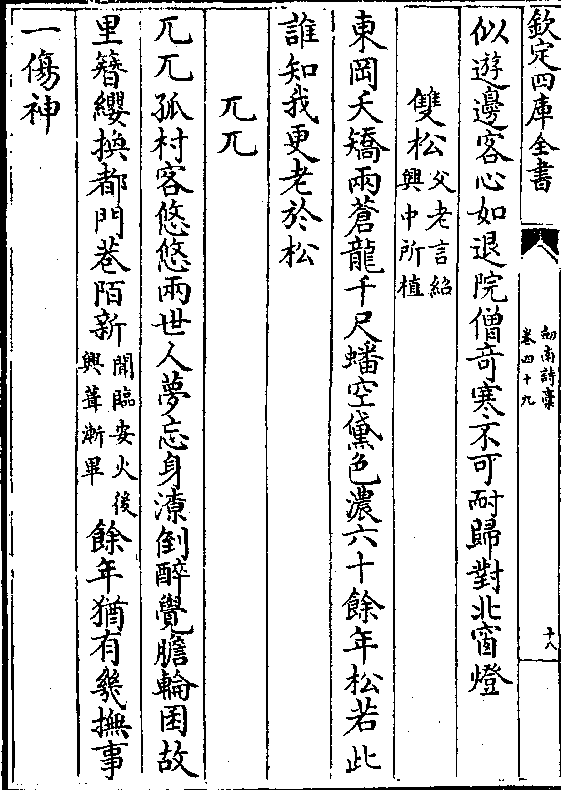 欽定四庫全書
劒南詩稾
卷四十九
十八
似遊邊客心如退院僧竒寒不可耐歸對北窗燈
雙松父老言紹興中所植
東岡夭矯兩蒼龍千尺蟠空黛色濃六十餘年松若此
誰知我更老於松
兀兀
兀兀孤村客悠悠兩世人夢忘身潦倒醉覺膽輪囷故
里簪纓換都門巷陌新聞臨安火後興葺漸畢餘年猶有幾撫事
一傷神